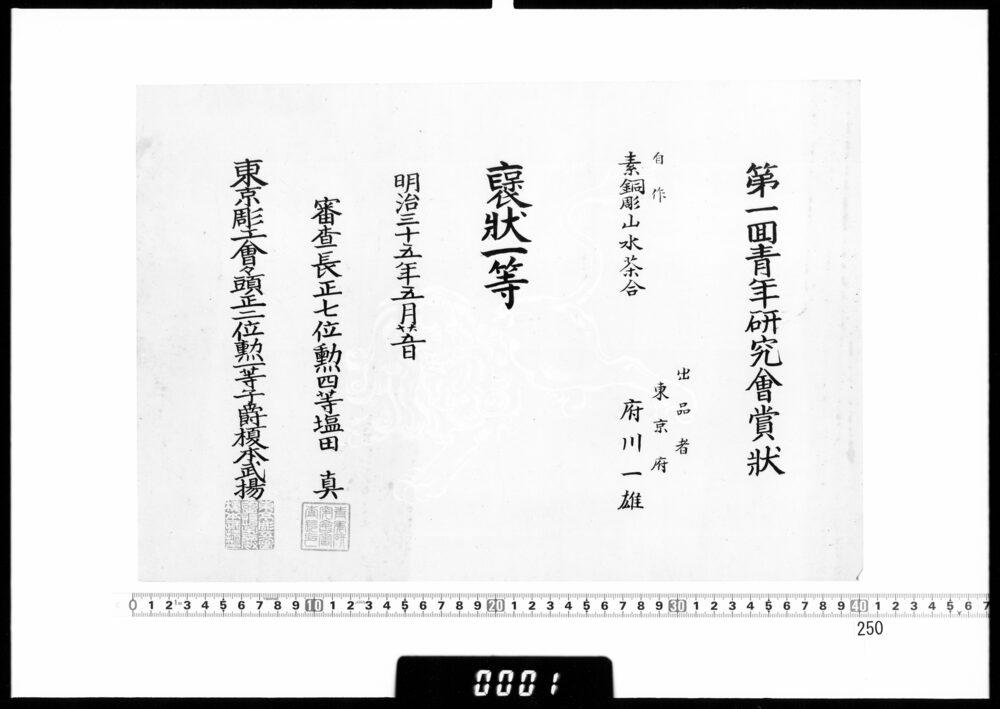 第一回青年研究會賞狀
自作
素銅彫山水茶合
出品者
東京府
府川一雄
褒狀一等
明治三十五年五月廿五日
審査長正七位勲四等塩田 真
東京彫工會々頭正二位勲一等子爵榎本武揚
0 1 2 3 4 5 6 7 8 9 10 1 2 3 4 5 6 7 8 9 20 1 2 3 4 5 6 7 8 9 30 1 2 3 4 5 6 7 8 9 40 1 2 3 4 5 6 7
250
0001